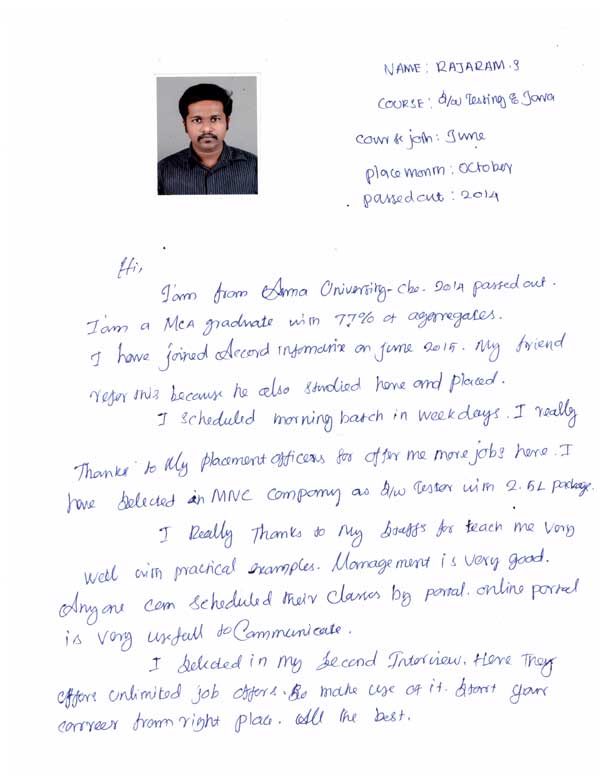 NAME: RAJARAM.S
COURSE: S/W Testing & Java
Course join: June
place month: October
passed out: 2014
Hi,
I am from Anna University-Cbe. 2014 passed out.
I am a MCA graduate with 77% of aggregates.
I have joined Accord Infomatrix on June 2015. My friend
refer this because he also studied here and placed.
I scheduled morning batch in weekdays. I really
Thanks to My placement officers for offer me more jobs here. I
have Selected in MNC Company as S/W Tester with 2.5L package.
I Really Thanks to My Staffs for teach me very
well with practical examples. Management is very good.
Anyone can scheduled their classes by portal. online portal
is very usefull to Communicate.
I Selected in my Second Interview. Here They
offers unlimited job offers. So make use of it. Start your
carreer from right place. All the best.